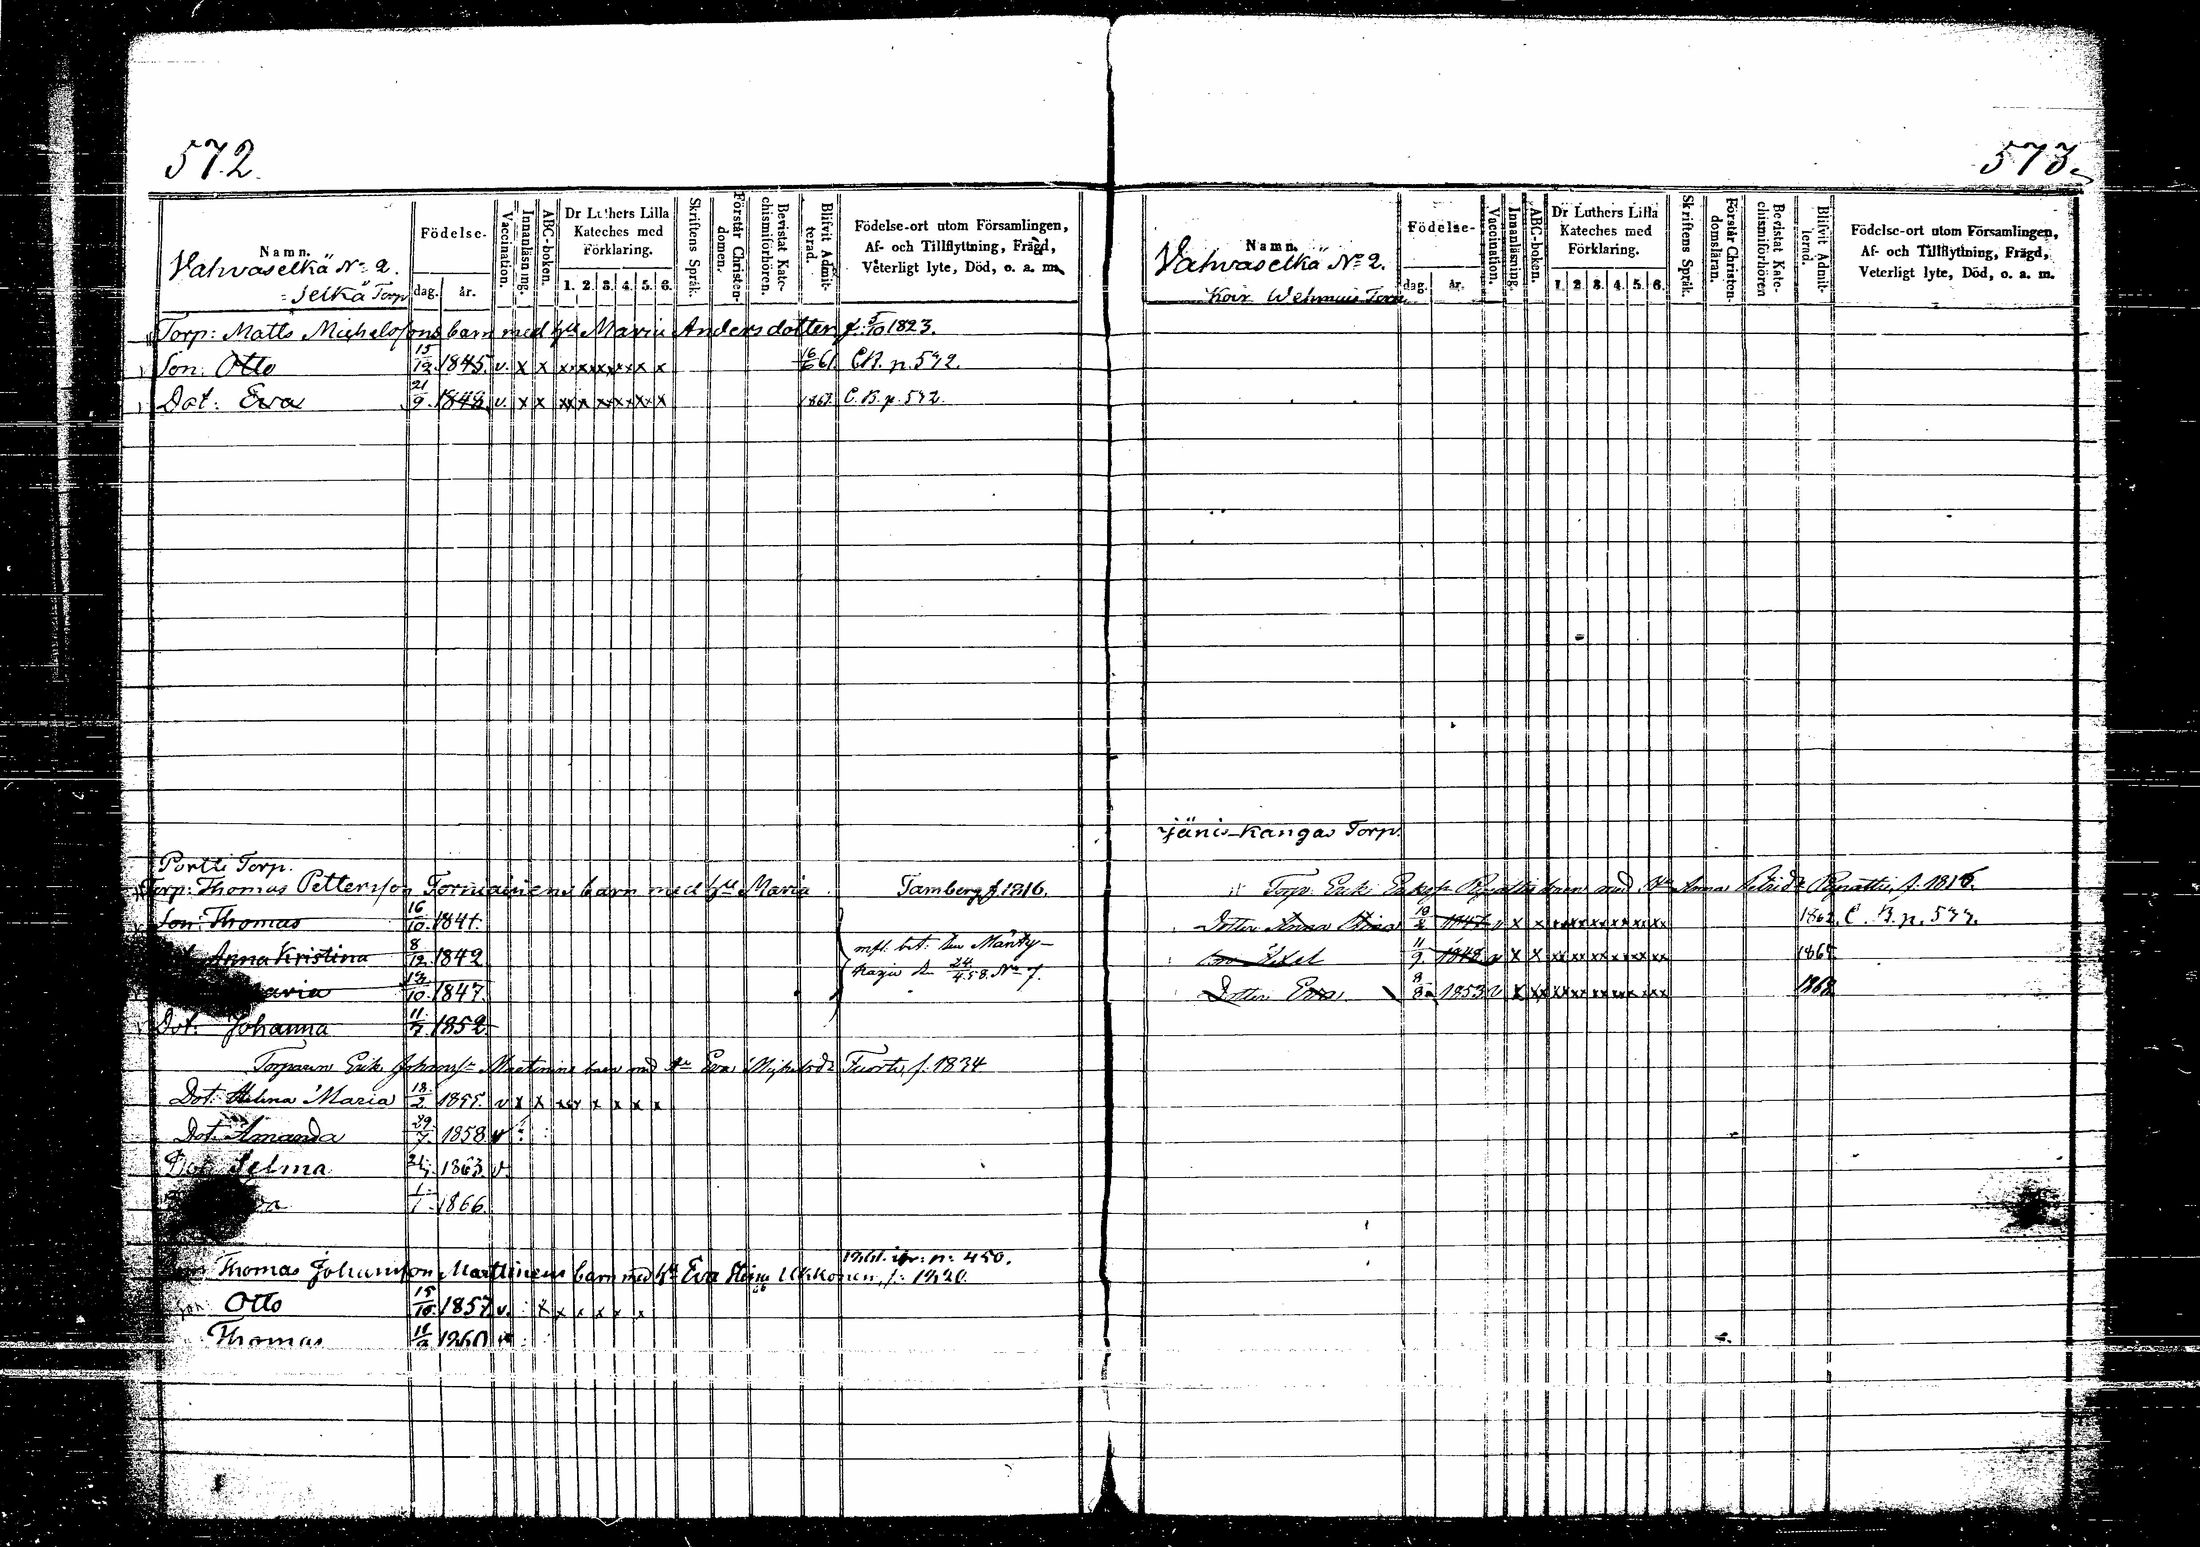 572.
Namn.
Vahvaselkä No 2.
Selkä Torp
Födelse-
dag. år.
Vaccination.
Innanläsning.
ABC-boken.
Dr Luthers Lilla
Kateches med
Förklaring.
1. 2. 3. 4. 5. 6.
Skriftens Språk.
Förstår Christen-
domen.
Bevistat Kate-
chismiförhören.
Blifvit Admit-
terad.
Födelse-ort utom Församlingen,
Af- och Tillflyttning, Frägd,
Veterligt lyte, Död, o. a. m.
Torp: Matts Michelssons barn med hu Maria Andersdotter f. 5/10 1823.
Son: Otto 15/12 1845. v. x x x x x x x x x x 16/6 61. C.B. p. 572.
Dot: Eva 21/9 1848. v. x x xx x x x x x x x 1867. C.B. p. 572.
Portti Torp.
Torp: Thomas Pettersson Tornianens barn med hu Maria Tamberg f. 1816.
Son: Thomas 16/10 1841.
Anna Kristina 8/12 1842
aria 10. 1847.
Dot: Johanna 11/7 1852.
24/4 58. No 7.
Torparen Erik Johanss Martinens barn med hu Eva Mickelsdr Tuorti, f. 1834
Dot: Helena Maria 18/2 1855. v x x xxx x x x x
Dot. Amanda 29/7 1858 v
Dot Selma 1863. v.
1/1 1866.
1861. p. 450.
Thomas Johansson Marttinens barn med hu Eva Stina Ukkonen, f. 1820.
Son Otto 15/10 1857 v. x x x x x x
Thomas 1860 v
573.
Namn.
Vahvaselkä No 2.
Koir Wehmais Torp
Födelse-
dag. år.
Vaccination.
Innanläsning.
ABC-boken.
Dr Luthers Lilla
Kateches med
Förklaring.
1. 2. 3. 4. 5. 6.
Skriftens Språk.
Förstår Christen-
domsläran.
Bevistat Kate-
chismiförhören
Blifvit Admit-
terad.
Födelse-ort utom Församlingen,
Af- och Tillflyttning, Frägd,
Veterligt lyte, Död, o. a. m.
jänis-kangas Torp.
Torp. Erik barn med hu Anna f. 1816.
Dotter Anna Stina v x x 1862. C. B. p. 572.
Axel 11/9 1848 v x x 1865.
Dotter Eva. 8/8 1853 v x xx 1868